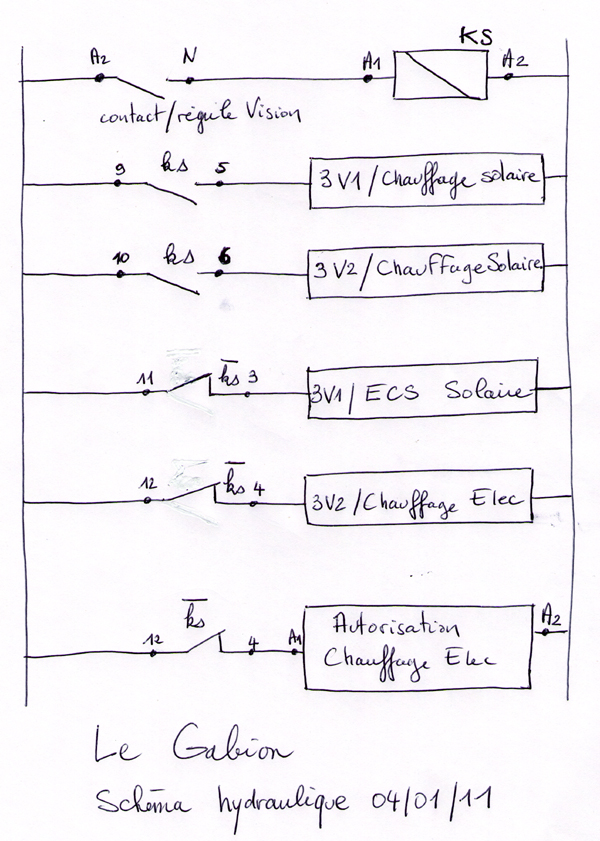 KS
A2 N A1 A2
contact/régule Vision
9 ks 5 3V1/Chauffage solaire
10 ks 6 3V2/Chauffage Solaire
11 k̅s̅ 3 3V1/ECS Solaire
12 k̅s̅ 4 3V2/Chauffage Elec
k̅s̅ A2
12 4 A1 Autorisation
Chauffage Elec
Le Gabion
Schéma hydraulique 04/01/11